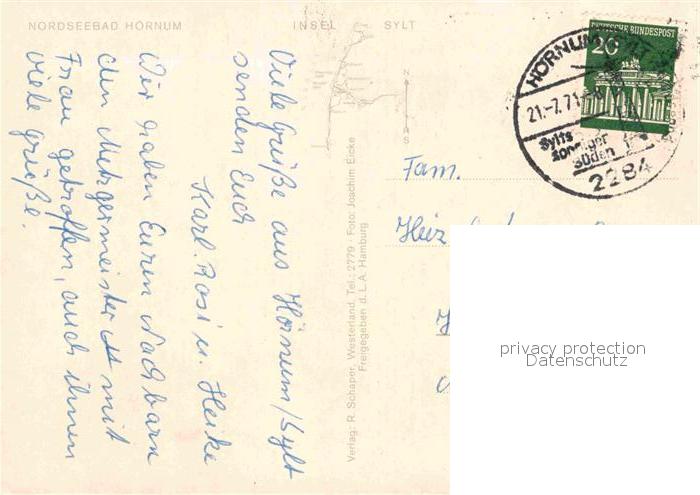 NORDSEEBAD HÖRNUM
INSEL SYLT
Viele Grüße aus Hörnum/Sylt
senden Euch
Karl. Rosi u. Heike
Wir haben Euren Nachbarn
den Metzgermeister mit
Frau getroffen, auch ihnen
viele Grüße.
Verlag: R. Schaper, Westerland, Tel.: 2779 Foto: Joachim Eicke
Freigegeben d. L.A. Hamburg
N
S
DEUTSCHE BUNDESPOST
20
HÖRNUM
21.-7.71
Sylts
sonniger
Süden
2284
Fam.
privacy protection
Datenschutz